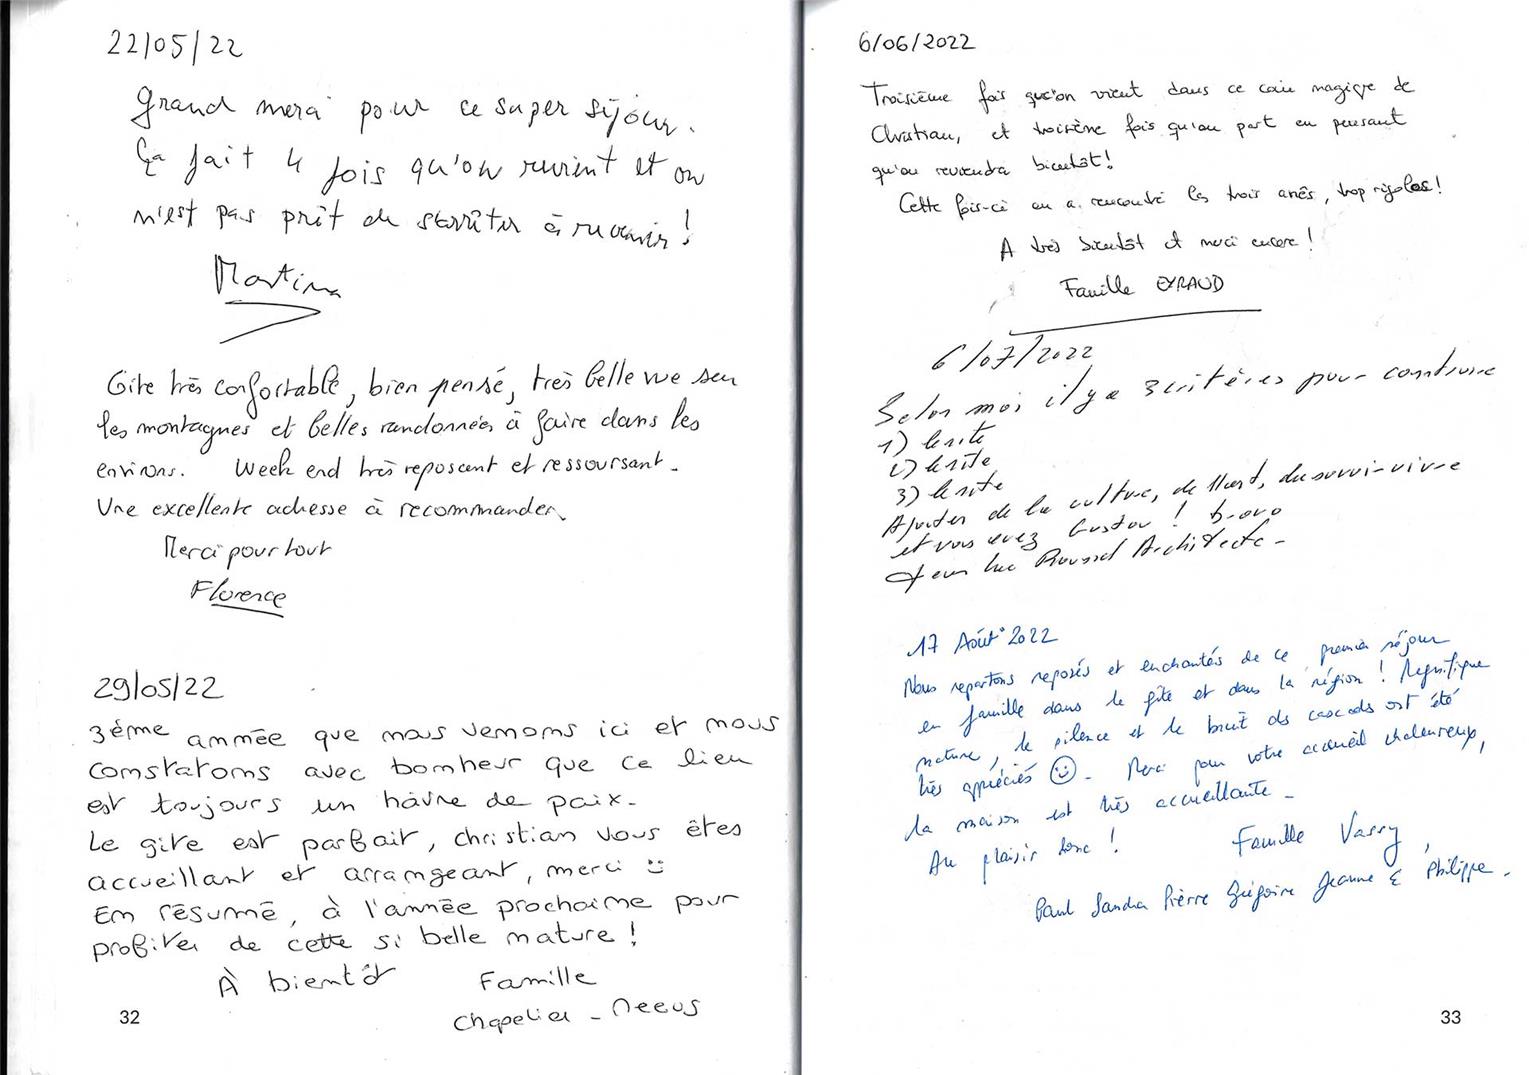 22/05/22
Grand merci pour ce super séjour.
Ça fait 4 fois qu'on revient et on
n'est pas prêt de s'arrêter à revenir !
Martina
Gite très confortable, bien pensé, très belle vue sur
les montagnes et belles randonnées à faire dans les
environs. Week end très reposant et ressoursant.
Une excellente adresse à recommander.
Merci pour tout
Florence
29/05/22
3ème année que nous venons ici et nous
constatons avec bonheur que ce lieu
est toujours un hâvre de paix.
Le gite est parfait, christian vous êtes
accueillant et arrangeant, merci
En résumé, à l'année prochaine pour
profiter de cette si belle nature !
À bientôt Famille
Chapelier - Neeus
32
6/06/2022
Troisième fois qu'on vient dans ce coin magique de
Christian, et troisième fois qu'on part en pensant
qu'on reviendra bientôt !
Cette fois-ci on a rencontré les trois anês, trop rigolos !
A très bientôt et merci encore !
Famille EYRAUD
6/07/2022
Selon moi il y a 3 critères pour construire
1) le site
2) le site
3) le site
Ajouter de la culture, de l'art, du savoir-vivre
et vous avez Gustav ! bravo
Jean Luc Roussel Architecte -
17 Août 2022
Nous repartons reposés et enchantés de ce premier séjour
en famille dans le gîte et dans la région ! Magnifique
nature, le silence et le bruit des cascades ont été
très appréciés ☺. Merci pour votre accueil chaleureux,
la maison est très accueillante.
Au plaisir donc !
Famille Vassy,
Paul Sandra Pierre Grégoire Jeanne & Philippe.
33